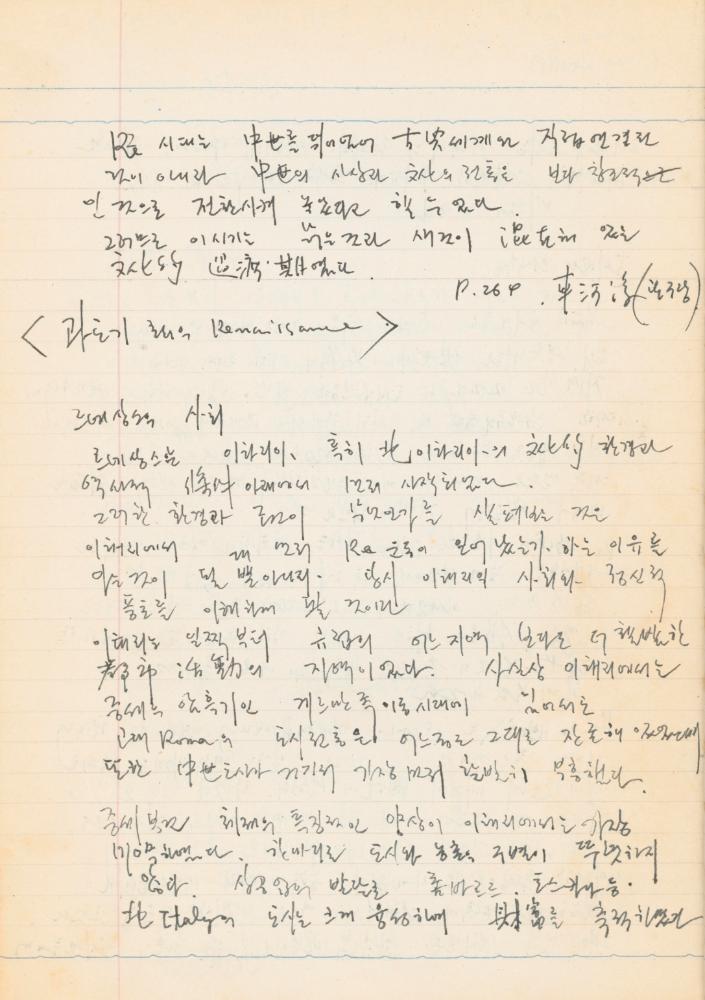 Re 시대는 中世를 뛰어넘어 古典세계와 직접 연결된
것이 아니라 中世의 사상과 文化의 전통을 보다 창조적
인 것으로 전환시켜 놓았다고 할 수 있다.
그러므로 이 시기는 낡은것과 새것이 混在해 있는
文化的 過渡期였다.
P. 264. 車河淳
<과도기 Renaissance>
르네상스의 사회
르네상스는 이탈리아, 특히 北이탈리아의 文化的 환경과
역사적 條件 아래에서 먼저 시작되었다.
그러한 환경과 조건이 무엇인가를 살펴보는 것은
이태리에서 왜 먼저 Re 운동이 일어났는가 하는 이유를
아는것이 될 뿐아니라 당시 이태리의 사회와 정신적
풍토를 이해하게 될 것이다
이태리는 일찍부터 유럽의 어느지역 보다도 더 활발한
都市 活動의 지역이었다. 사실상 이태리에서는
중세의 암흑기인 게르만족 이동시대에 있어서도
고대 Roma의 도시전통은 어느정도 그대로 잔존해 있었으며
또한 中世도시가 거기서 가장 먼저 활발히 부흥했다.
중세 봉건 체제의 특징적인 양상이 이태리에서는 가장
미약하였다. 한마디로 도시와 농촌의 구별이 뚜렷하지
않다. 상공업의 발달로 롬바르드, 토스카나 등
北 Italy의 도시는 크게 융성하여 財富를 축적하였다